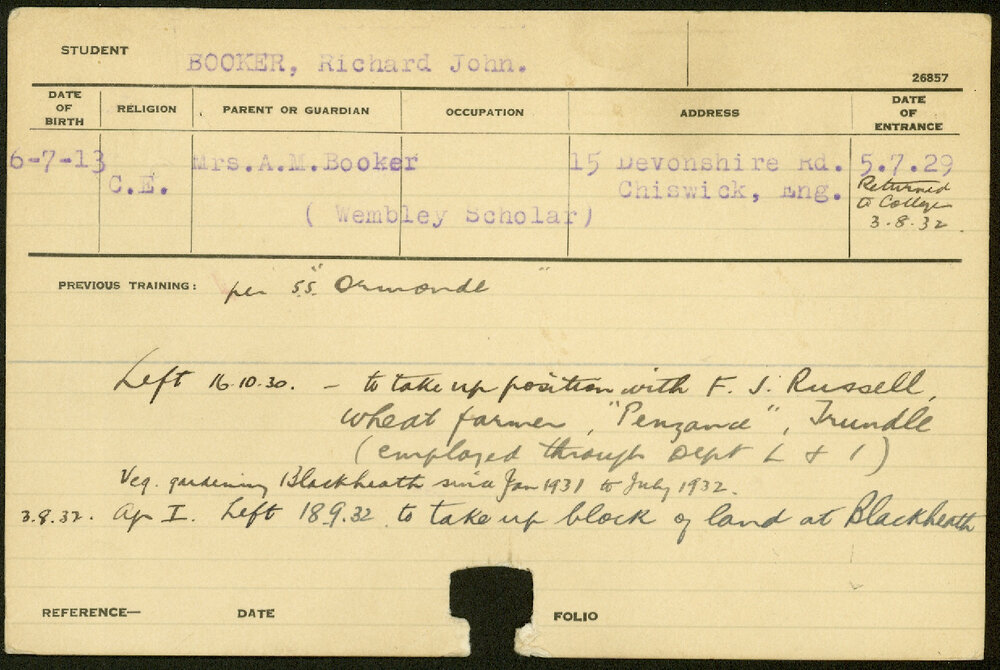 STUDENT BOOKER, Richard John.
26857
DATE OF BIRTH RELIGION PARENT OR GUARDIAN OCCUPATION ADDRESS DATE OF ENTRANCE
6-7-13 Mrs.A.M.Booker 15 Devonshire Rd. 5.7.29
C.E. Chiswick, Eng. Returned
( Wembley Scholar) to College
3.8.32.
PREVIOUS TRAINING: per S.S. "Ormonde"
Left 16.10.30. - to take up position with F. J. Russell,
wheat farmer, "Penzance", Trundle
(employed through Dept L & I)
Veg. gardening Blackheath since Jan 1931 to July 1932.
3.8.32. Ap I. Left 18.9.32 to take up block of land at Blackheath
REFERENCE— DATE FOLIO